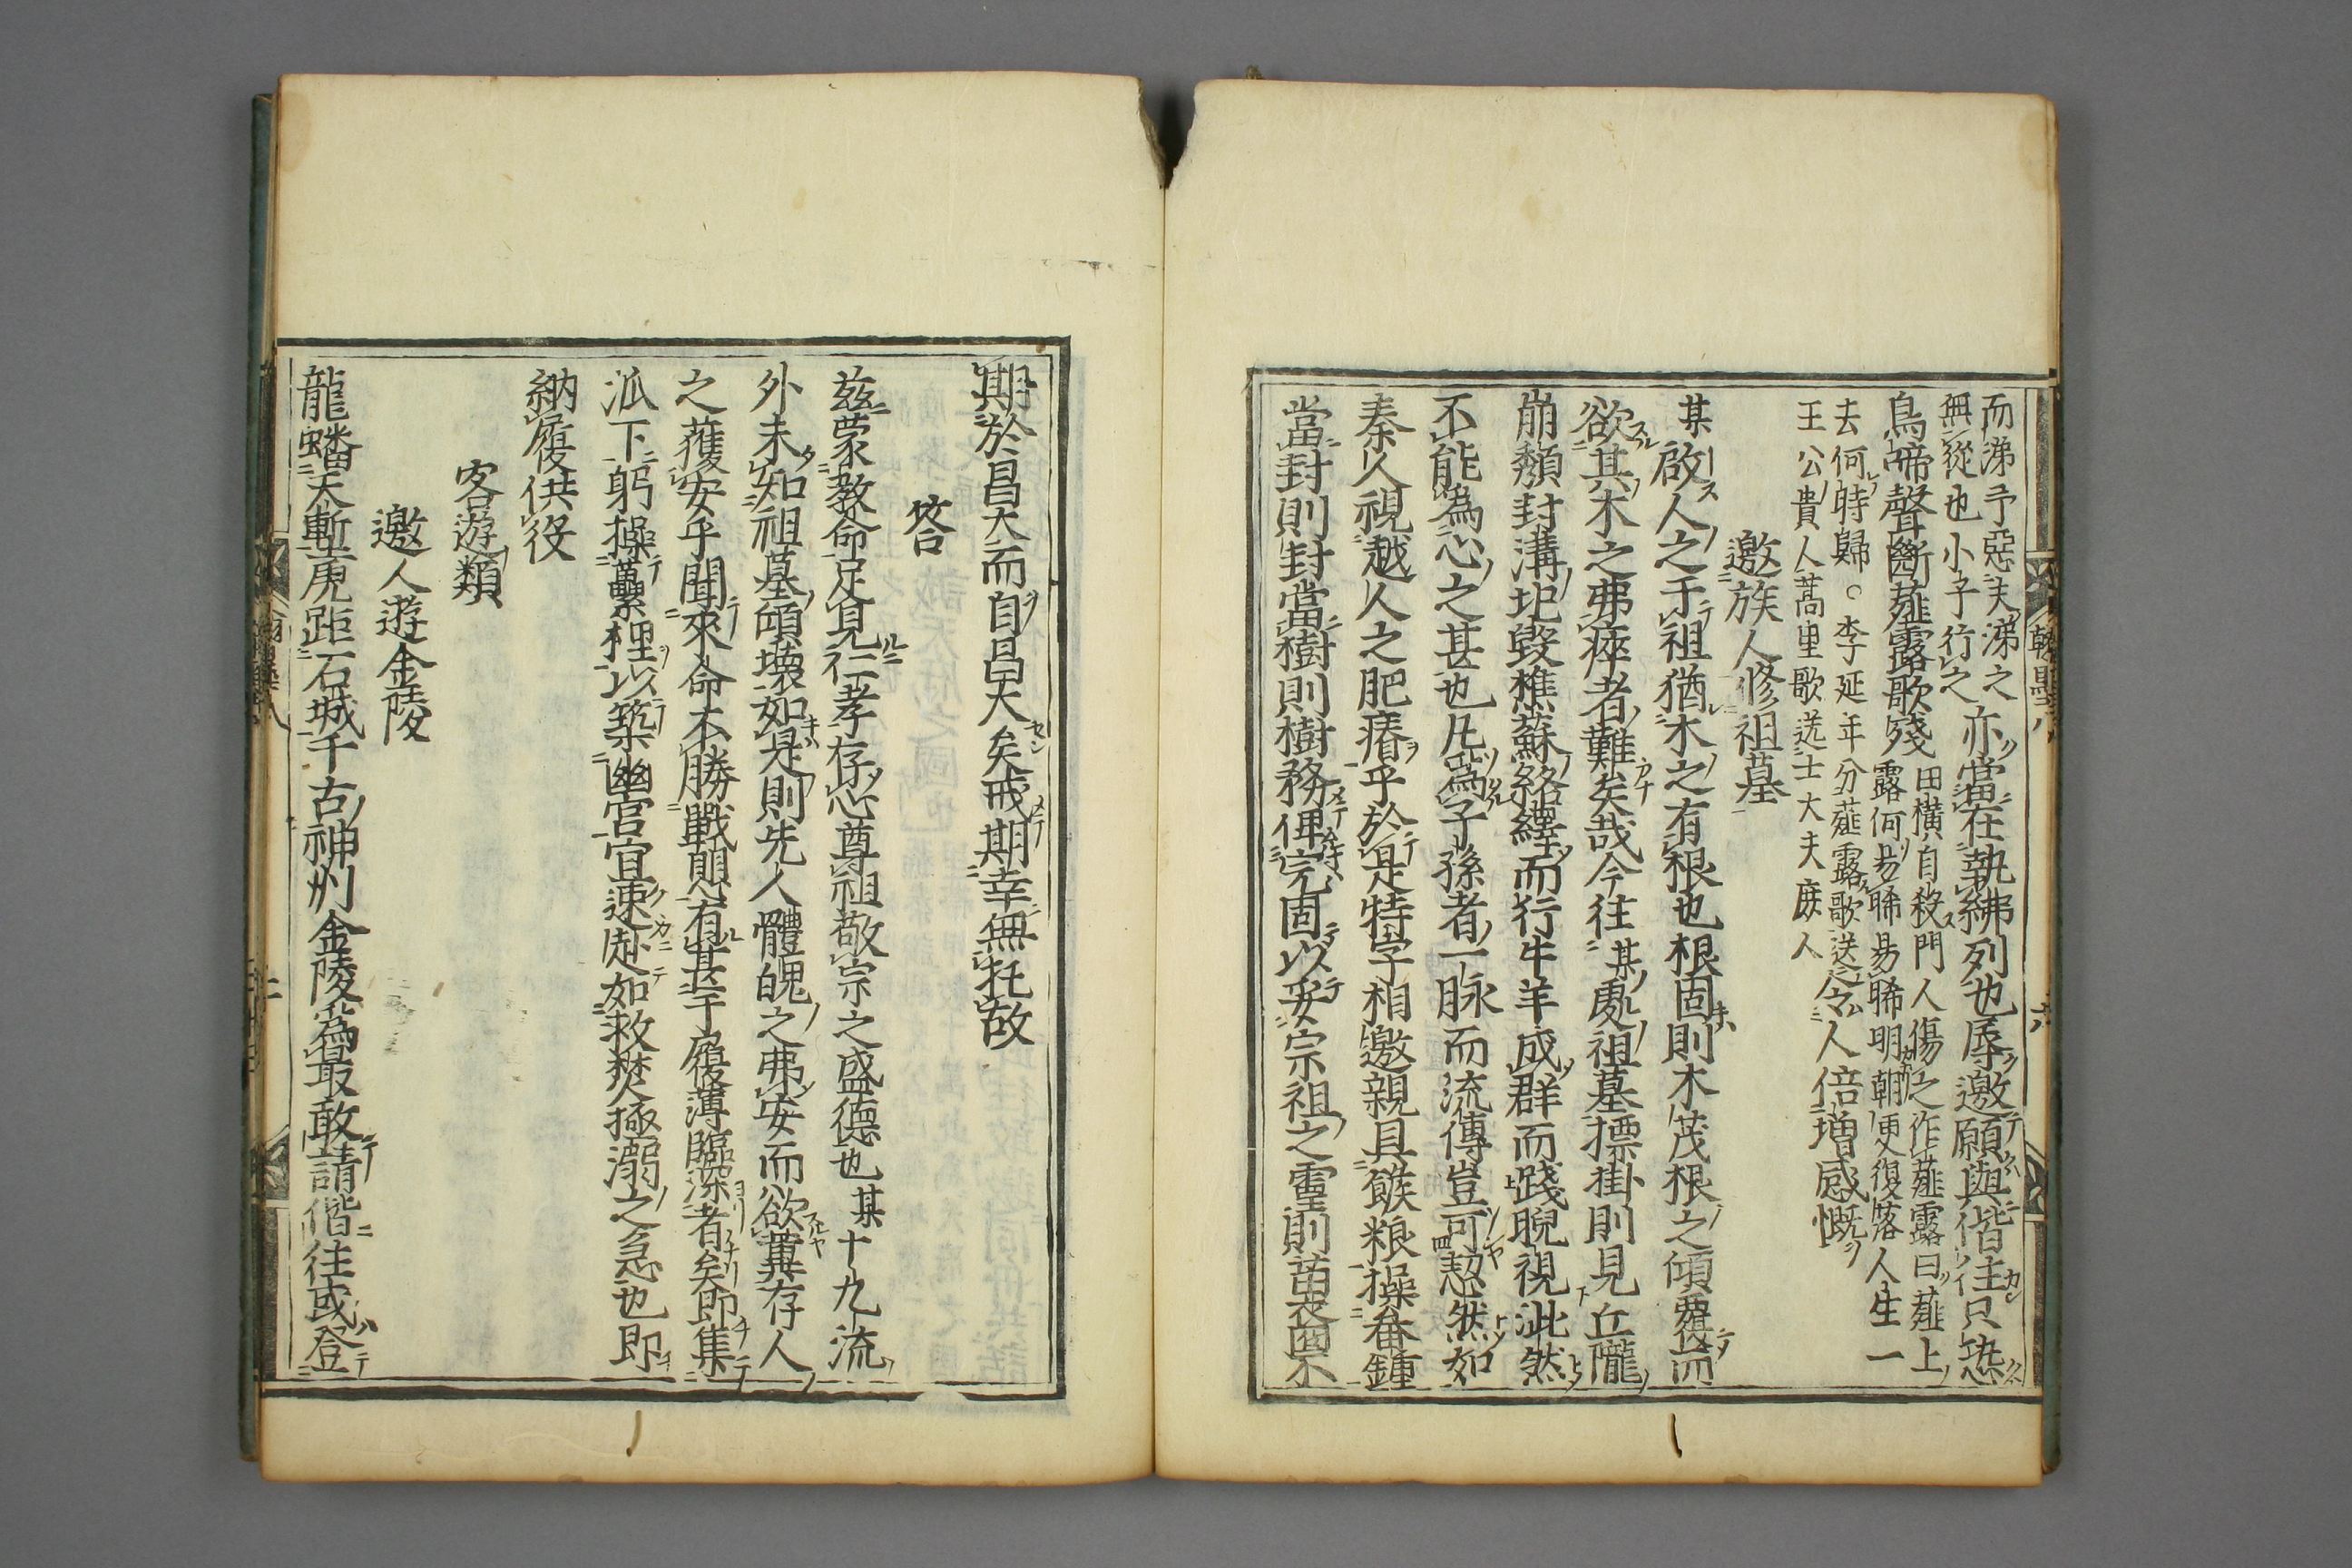 而涕予惡夫涕之
無從也小子行之
亦當在執紼列也辱邀願與偕往只恐
鳥啼聲斷薤露歌殘
田橫自殺門人傷之作薤露曰薤上
露何易晞易晞明朝更復落人生一
去何時歸○李延年分薤露歌送
王公貴人蒿里歌送士大夫庶人
令人倍增感慨
邀族人修祖墓
某啟人之于祖猶木之有根也根固則木茂根之傾覆而
欲其木之弗瘁者難矣哉今往某處祖墓摽掛則見丘隴
崩頹封溝圮毀樵蘇絡繹而行牛羊成群而踐睨視泚然
不能為心之甚也凡為子孫者一脉而流傳豈可恝然如
秦人視越人之肥瘠乎於是特字相邀親具餱粮操畚鍾
當封則封當樹則樹務俾完固以妥宗祖之靈則苗裔不
期於昌大而自昌大矣戒期幸無托故
答
茲蒙教命足見仁孝存心尊祖敬宗之盛德也某十九流
外未知祖墓傾壊如是則先人體魄之弗安而欲冀存人
之獲安乎聞來命不勝戰惧有甚于履薄臨深者矣即集
派下躬操虆梩以築幽宮宜速赴如救焚拯溺之急也即
納履供役
客遊類
邀人遊金陵
龍蟠天塹虎距石城千古神州金陵為最敢請偕往或登
翰墨八
六